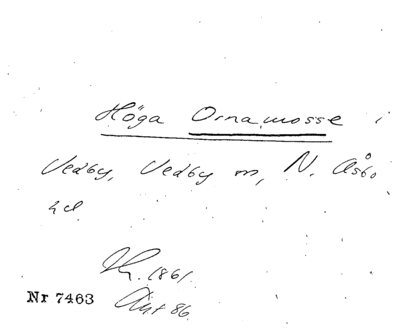 Höga Ornamosse i
Vedby, Vedby m, N. Åsbo
hd
1861.
Nr 7463
86.